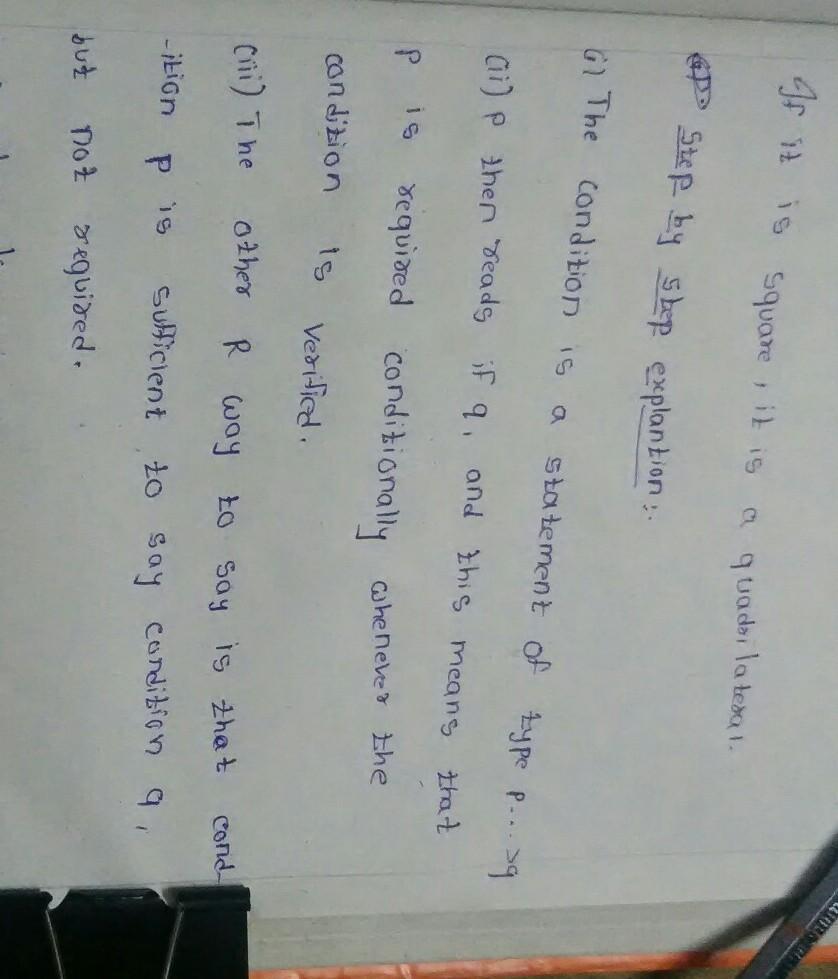 If it is square, it is a quadrilateral.
Step by step explantion:.
(i) The condition is a statement of type p...>q
(ii) p then reads if q, and this means that
p is required conditionally whenever the
condition is verified.
(iii) The other R way to say is that cond-
-ition p is sufficient to say condition q,
but not required.